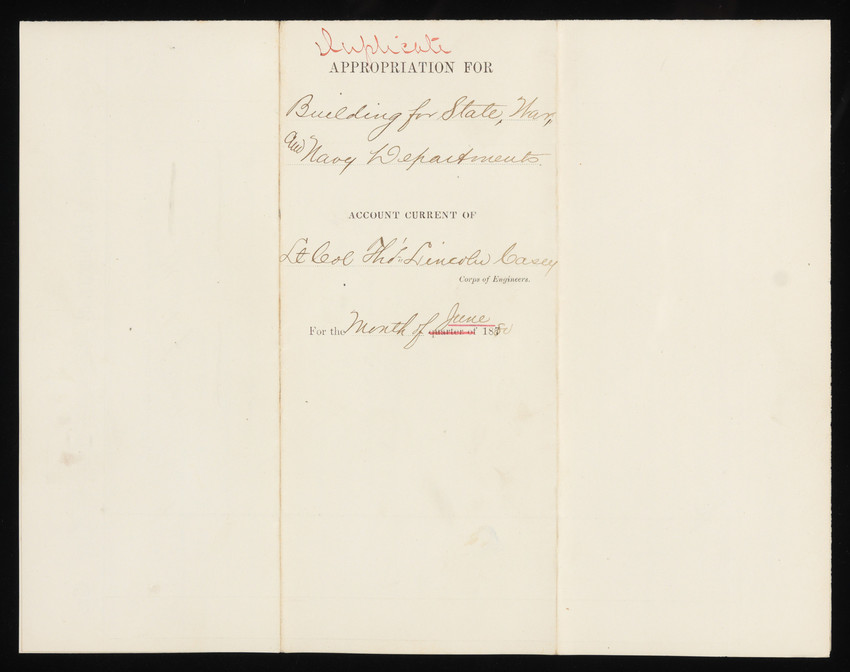 Duplicate
APPROPRIATION FOR
Building for State, War,
and Navy Departments.
ACCOUNT CURRENT OF
Lt Col Thos. Lincoln Casey
Corps of Engineers.
For the Month of quarter of June 1880